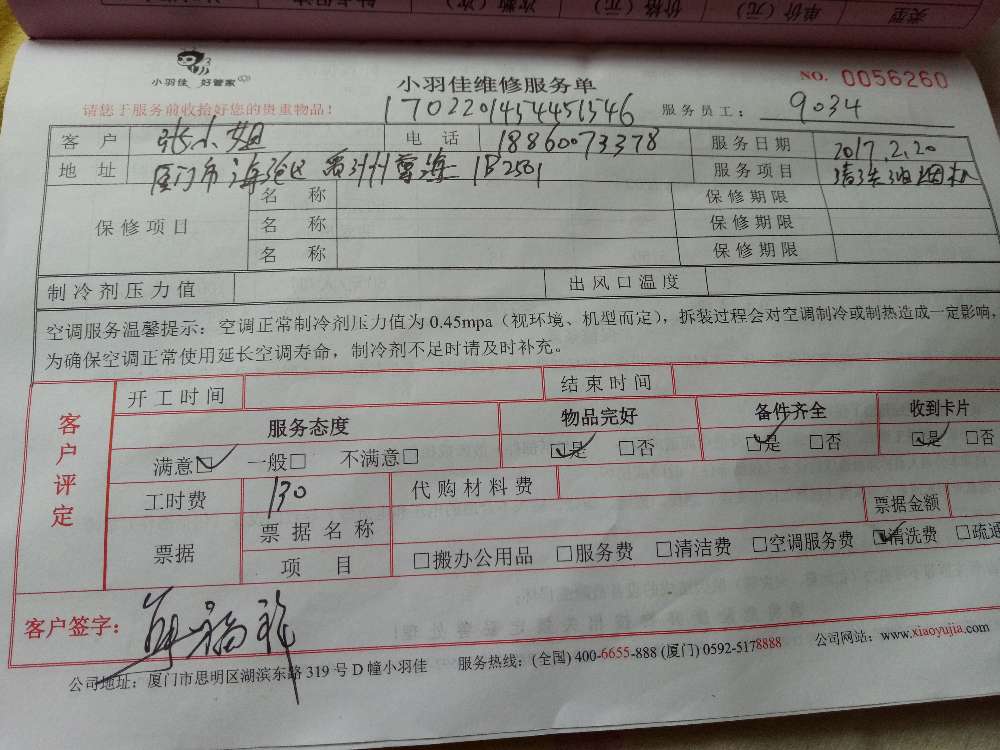 类型 单价（元） 价格（元） 次数（次）
小羽佳 好管家
小羽佳维修服务单
NO. 0056260
请您于服务前收拾好您的贵重物品！
1702201454451546
服务员工： 9034
客户 张小姐 电话 18860073378 服务日期 2017.2.20
地址 厦门市海沧区 1B2501 服务项目 清洗油烟机
保修项目 名称 保修期限
名称 保修期限
名称 保修期限
制冷剂压力值 出风口温度
空调服务温馨提示：空调正常制冷剂压力值为 0.45mpa（视环境、机型而定），拆装过程会对空调制冷或制热造成一定影响，
为确保空调正常使用延长空调寿命，制冷剂不足时请及时补充。
客户评定
开工时间 结束时间
服务态度 物品完好 备件齐全 收到卡片
满意☑ 一般□ 不满意□ ☑是 □否 ☑是 □否 ☑是 □否
工时费 130 代购材料费
票据 票据名称 票据金额
项目 □搬办公用品 □服务费 □清洁费 □空调服务费 ☑清洗费 □疏通
客户签字：
公司地址：厦门市思明区湖滨东路 319 号 D 幢小羽佳 服务热线：(全国) 400-6655-888 (厦门) 0592-5178888 公司网站：www.xiaoyujia.com